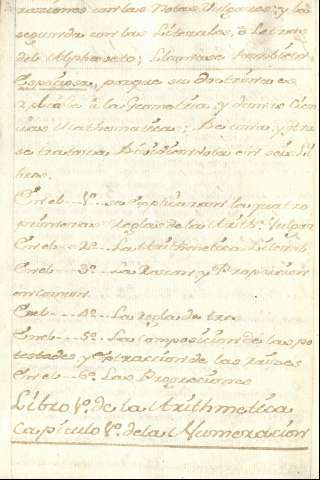 raziones con las Notas Vulgares; y la
segunda con las Literales, ò Letras
del Alphaveto; Llamase tambien
Especiosa, porque su Doctrina es
aplicable à la Geometria, y demas Cien
cias Mathematicas; De una, y otra
se tratara Distintamente en seis Li
bros.
En el - - 1º. se explicaran las quatro
primeras Reglas de la Arith.ª Vulgar
En el - - 2º. La Arithmetica Literal
En el - - 3º. La Razon, y Proporcion
en comun.
En el - - 4º. La regla de tres
En el - - 5º. La composicion de las po
testades, y extraccion de las raizes
En el - - 6º. Las Progreciones
Libro 1º. de la Arithmetica
Capitulo 1º. de la Numeracion